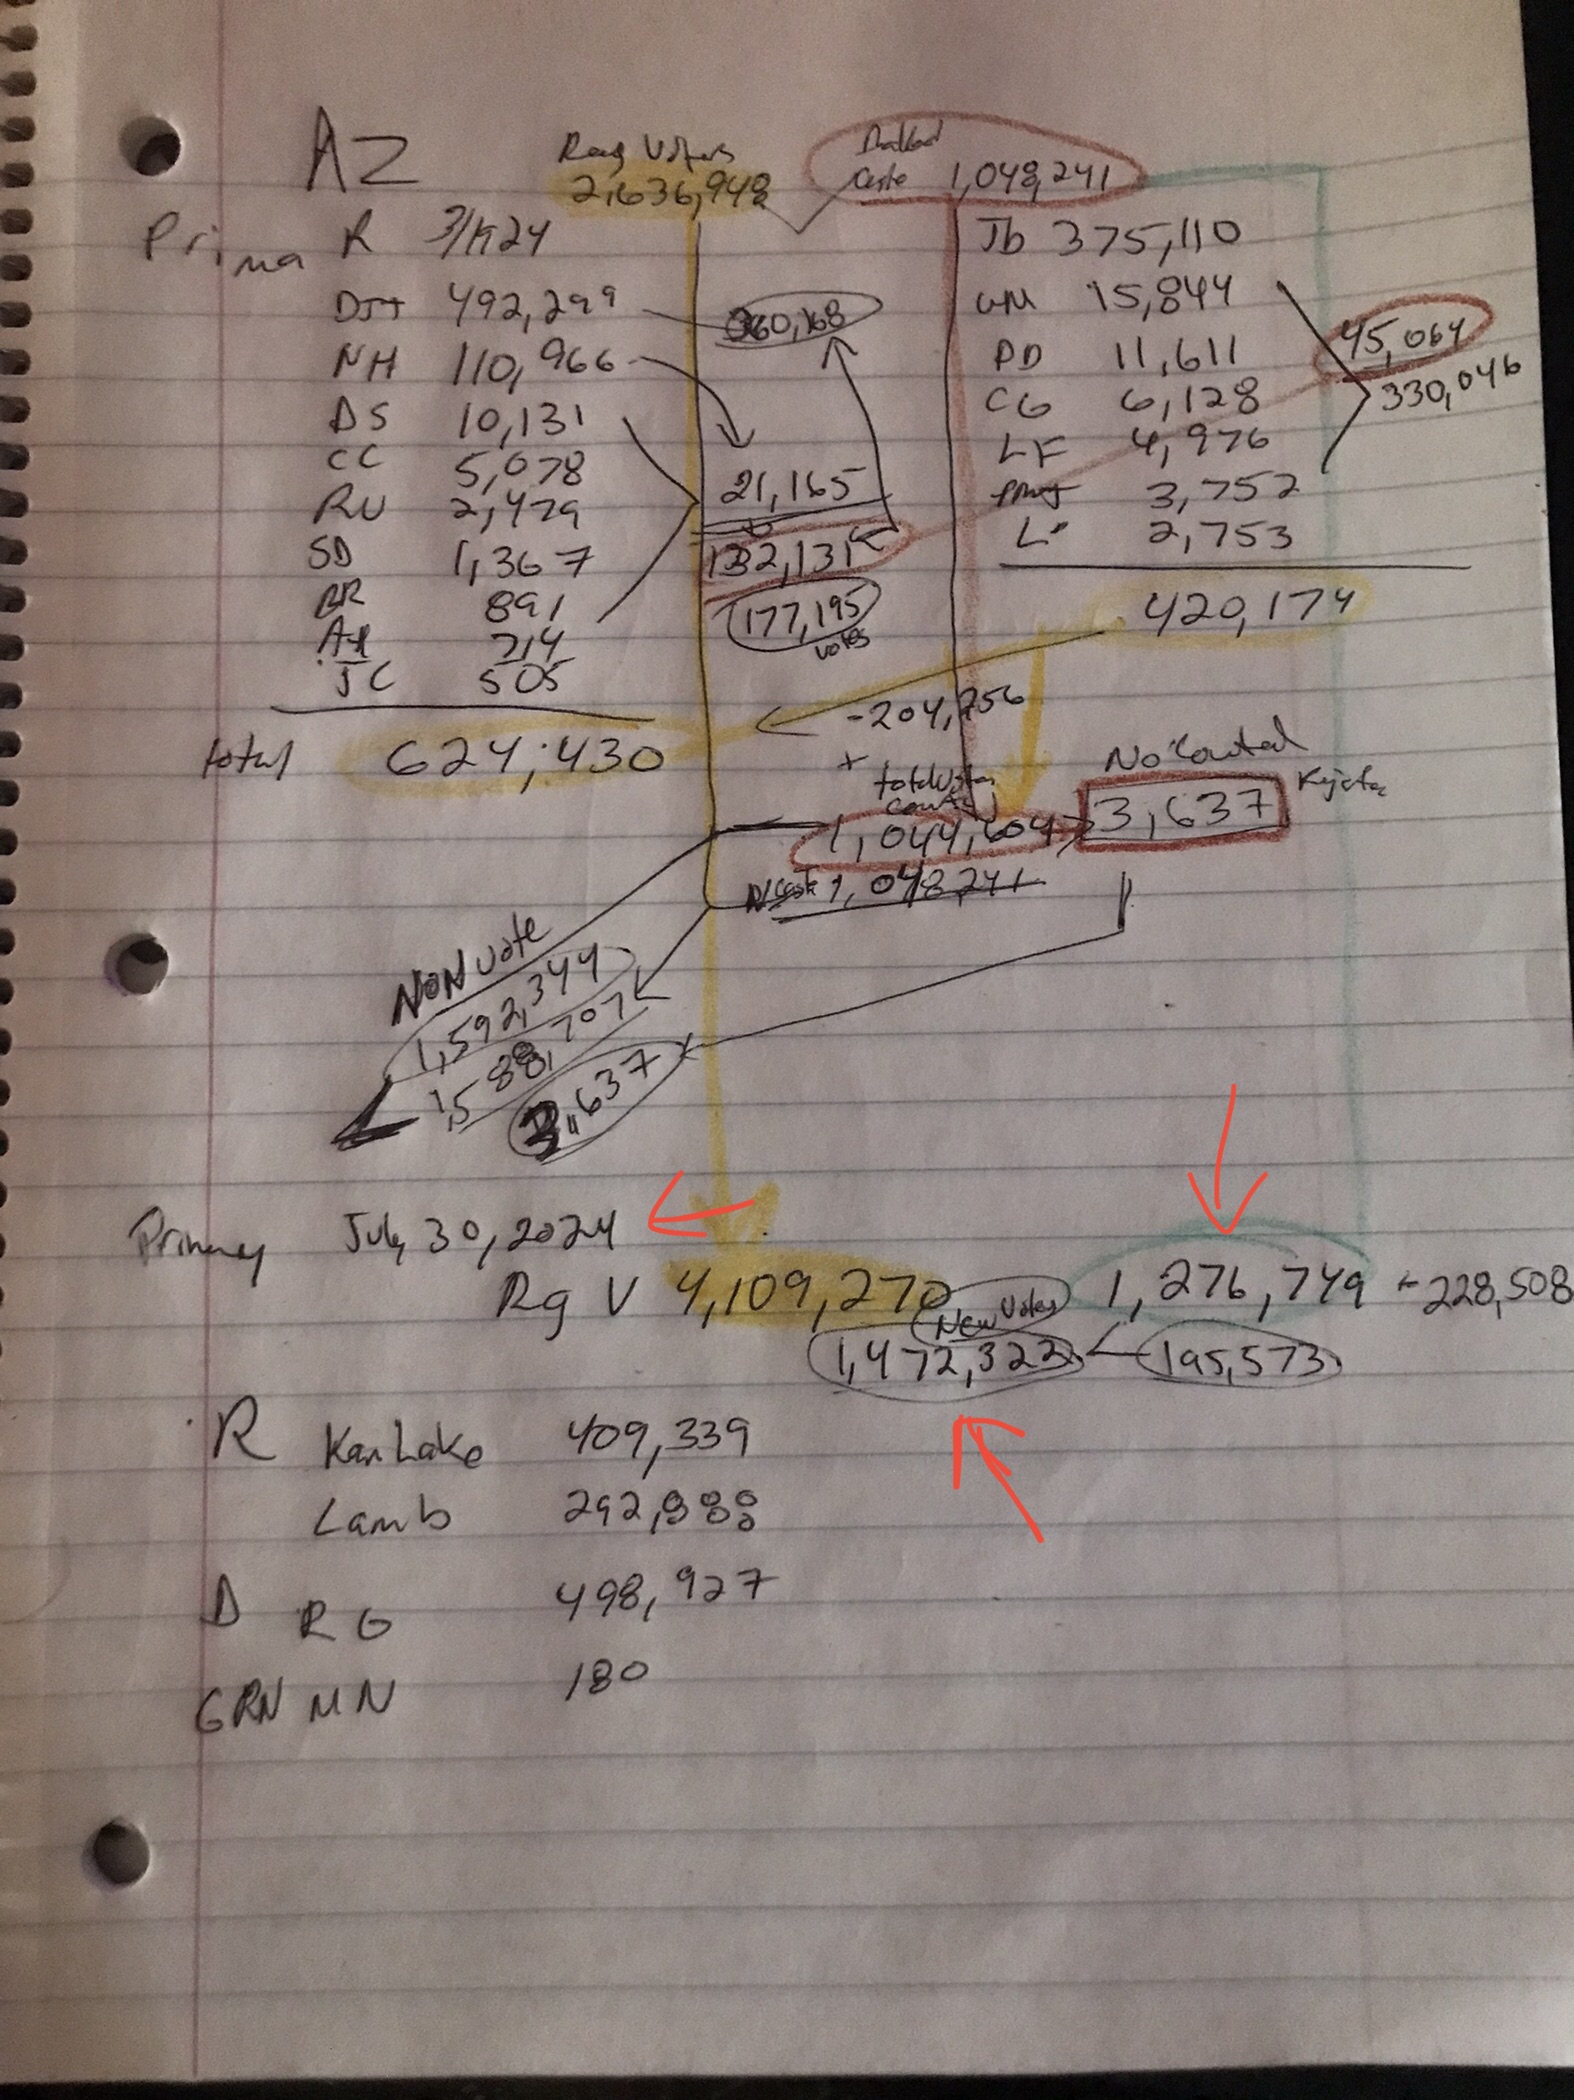 AZ
Reg Voters
2,636,948
Ballod
Caste 1,048,241
Prima R 3/19/24
Jb 375,110
DJT 492,299
360,168
WM 15,844
45,064
NH 110,966
PD 11,611
330,046
DS 10,131
CG 6,128
CC 5,078
LF 4,976
RU 2,479
21,165
3,752
SD 1,367
132,131
L 2,753
BR 891
177,195
votes
420,174
AH 714
JC 505
-204,256
total 624,430
+
No Counted
total votes
count
1,044,604
3,637
1,048,241
NON vote
1,592,344
1,588,707
3,637
Primary July 30, 2024
Rg V 4,109,270
1,276,749 + 228,508
New Votes
1,472,322
195,573
R Kari Lake 409,339
Lamb 292,888
D RG 498,927
GRN MN 180